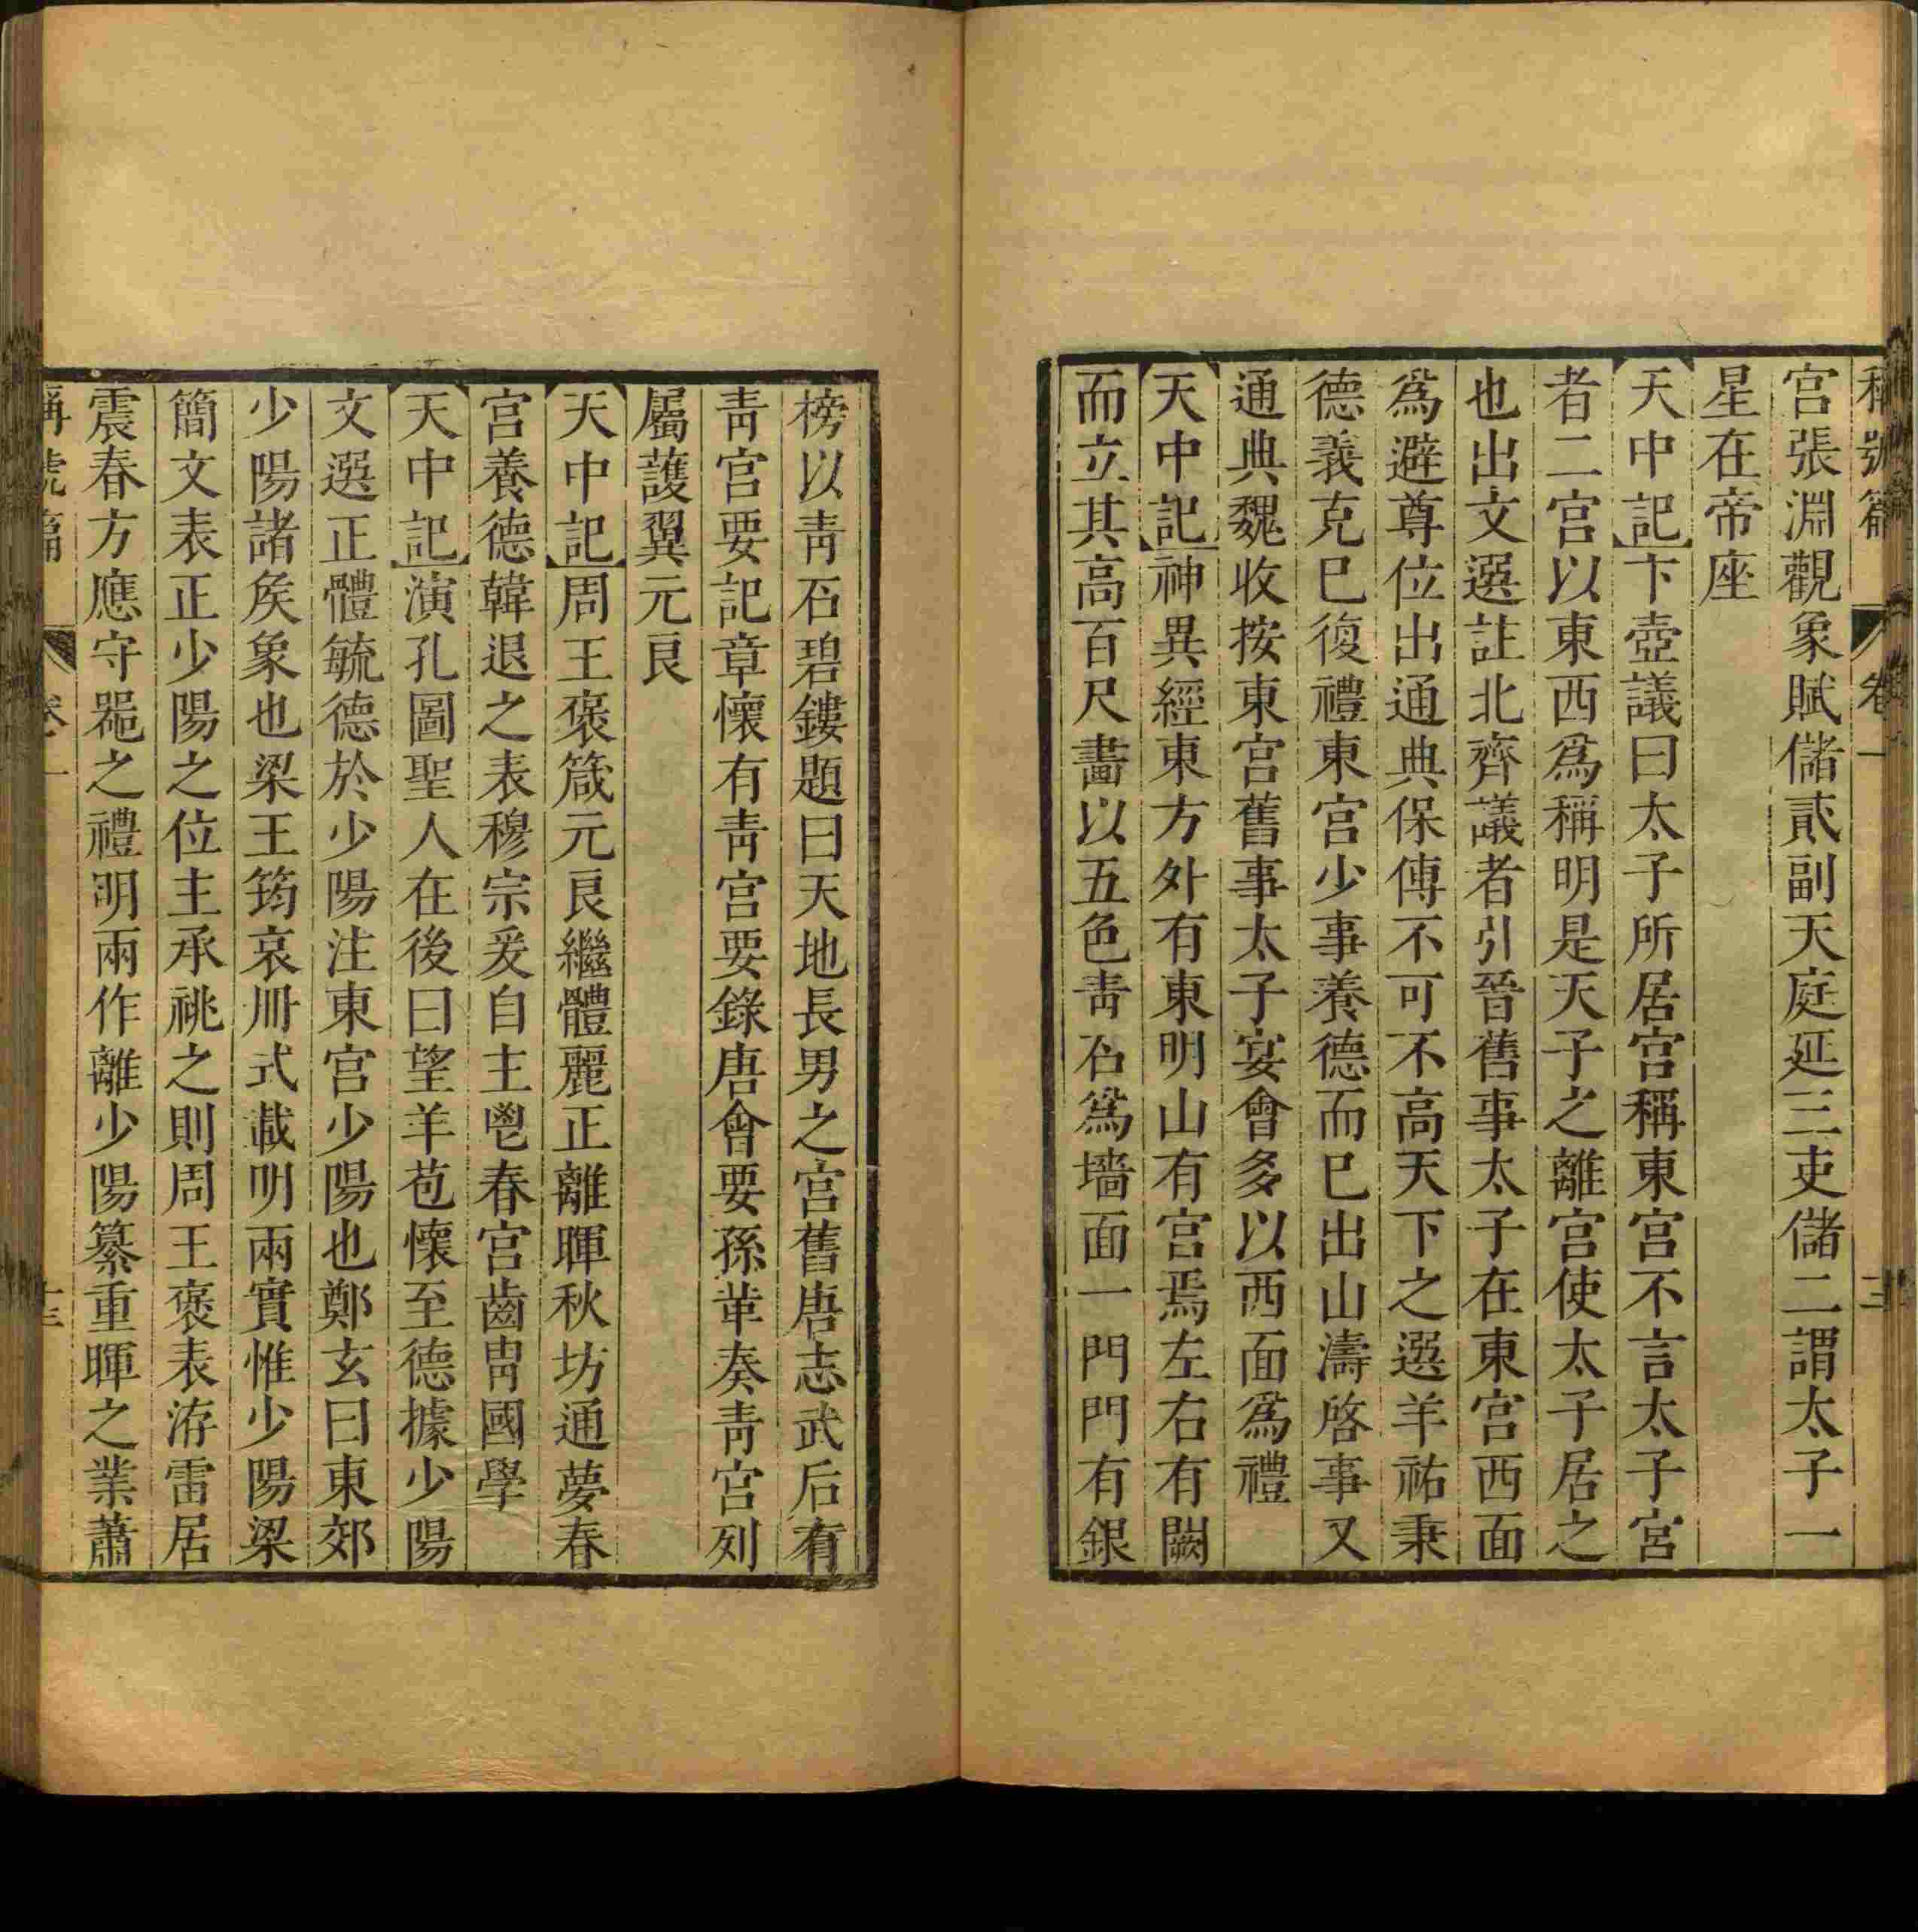 稱號篇 卷一 三
宮張淵觀象賦儲貳副天庭延三吏儲二謂太子一
星在帝座
天中記卞壺議曰太子所居宮稱東宮不言太子宮
者二宮以東西爲稱明是天子之離宮使太子居之
也出文選註北齊議者引晉舊事太子在東宮西面
爲避尊位出通典保傅不可不高天下之選羊祐秉
德義克巳復禮東宮少事養德而巳出山濤啓事又
通典魏收按東宮舊事太子宴會多以西面爲禮
天中記神異經東方外有東明山有宮焉左右有闕
而立其高百尺畫以五色靑石爲墻面一門門有銀
榜以靑石碧鏤題曰天地長男之宮舊唐志武后有
靑宮要記章懷有靑宮要錄唐會要孫革奏靑宮列
屬護翼元良
天中記周王褒箴元良繼體麗正離暉秋坊通夢春
宮養德韓退之表穆宗爰自主鬯春宮齒胄國學
天中記演孔圖聖人在後曰望羊苞懷至德據少陽
文選正體毓德於少陽注東宮少陽也鄭玄曰東郊
少陽諸矦象也梁王筠哀冊式載明兩實惟少陽梁
簡文表正少陽之位主承祧之則周王褒表洊雷居
震春方應守器之禮明兩作離少陽纂重暉之業蕭
稱號篇 卷一